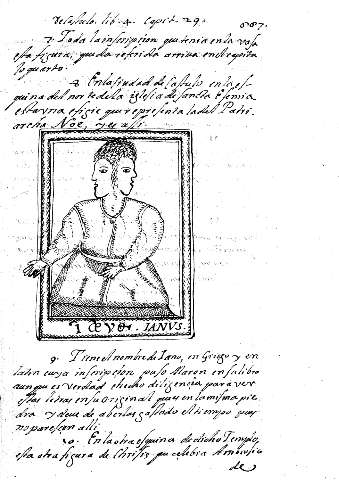 de Castulo. lib. 4. Capit 29. 887.
7. Toda la inscripcion que tenia en la vasa
esta figura, queda referida arriba en el capitu
lo quarto.
8. En la ciudad de Castulo en la es
quina del norte de la iglesia de sancta Efemia
esta yna efigie que representa la del Patri
archa Noe, y es asi.
IANVS.
9. Tiene el nombre de Iano, en Griego y en
latin cuya inscripcion puso Maron en su libro
aunque es verdad e hecho diligencia para ver
estas letras en su original que es en la misma pie
dra y deue de aberlas gastado el tiempo pues
no paresen alli.
10. En la otra esquina de dicho Templo,
esta otra figura de Chrisis, que celebra Ambrosio
de